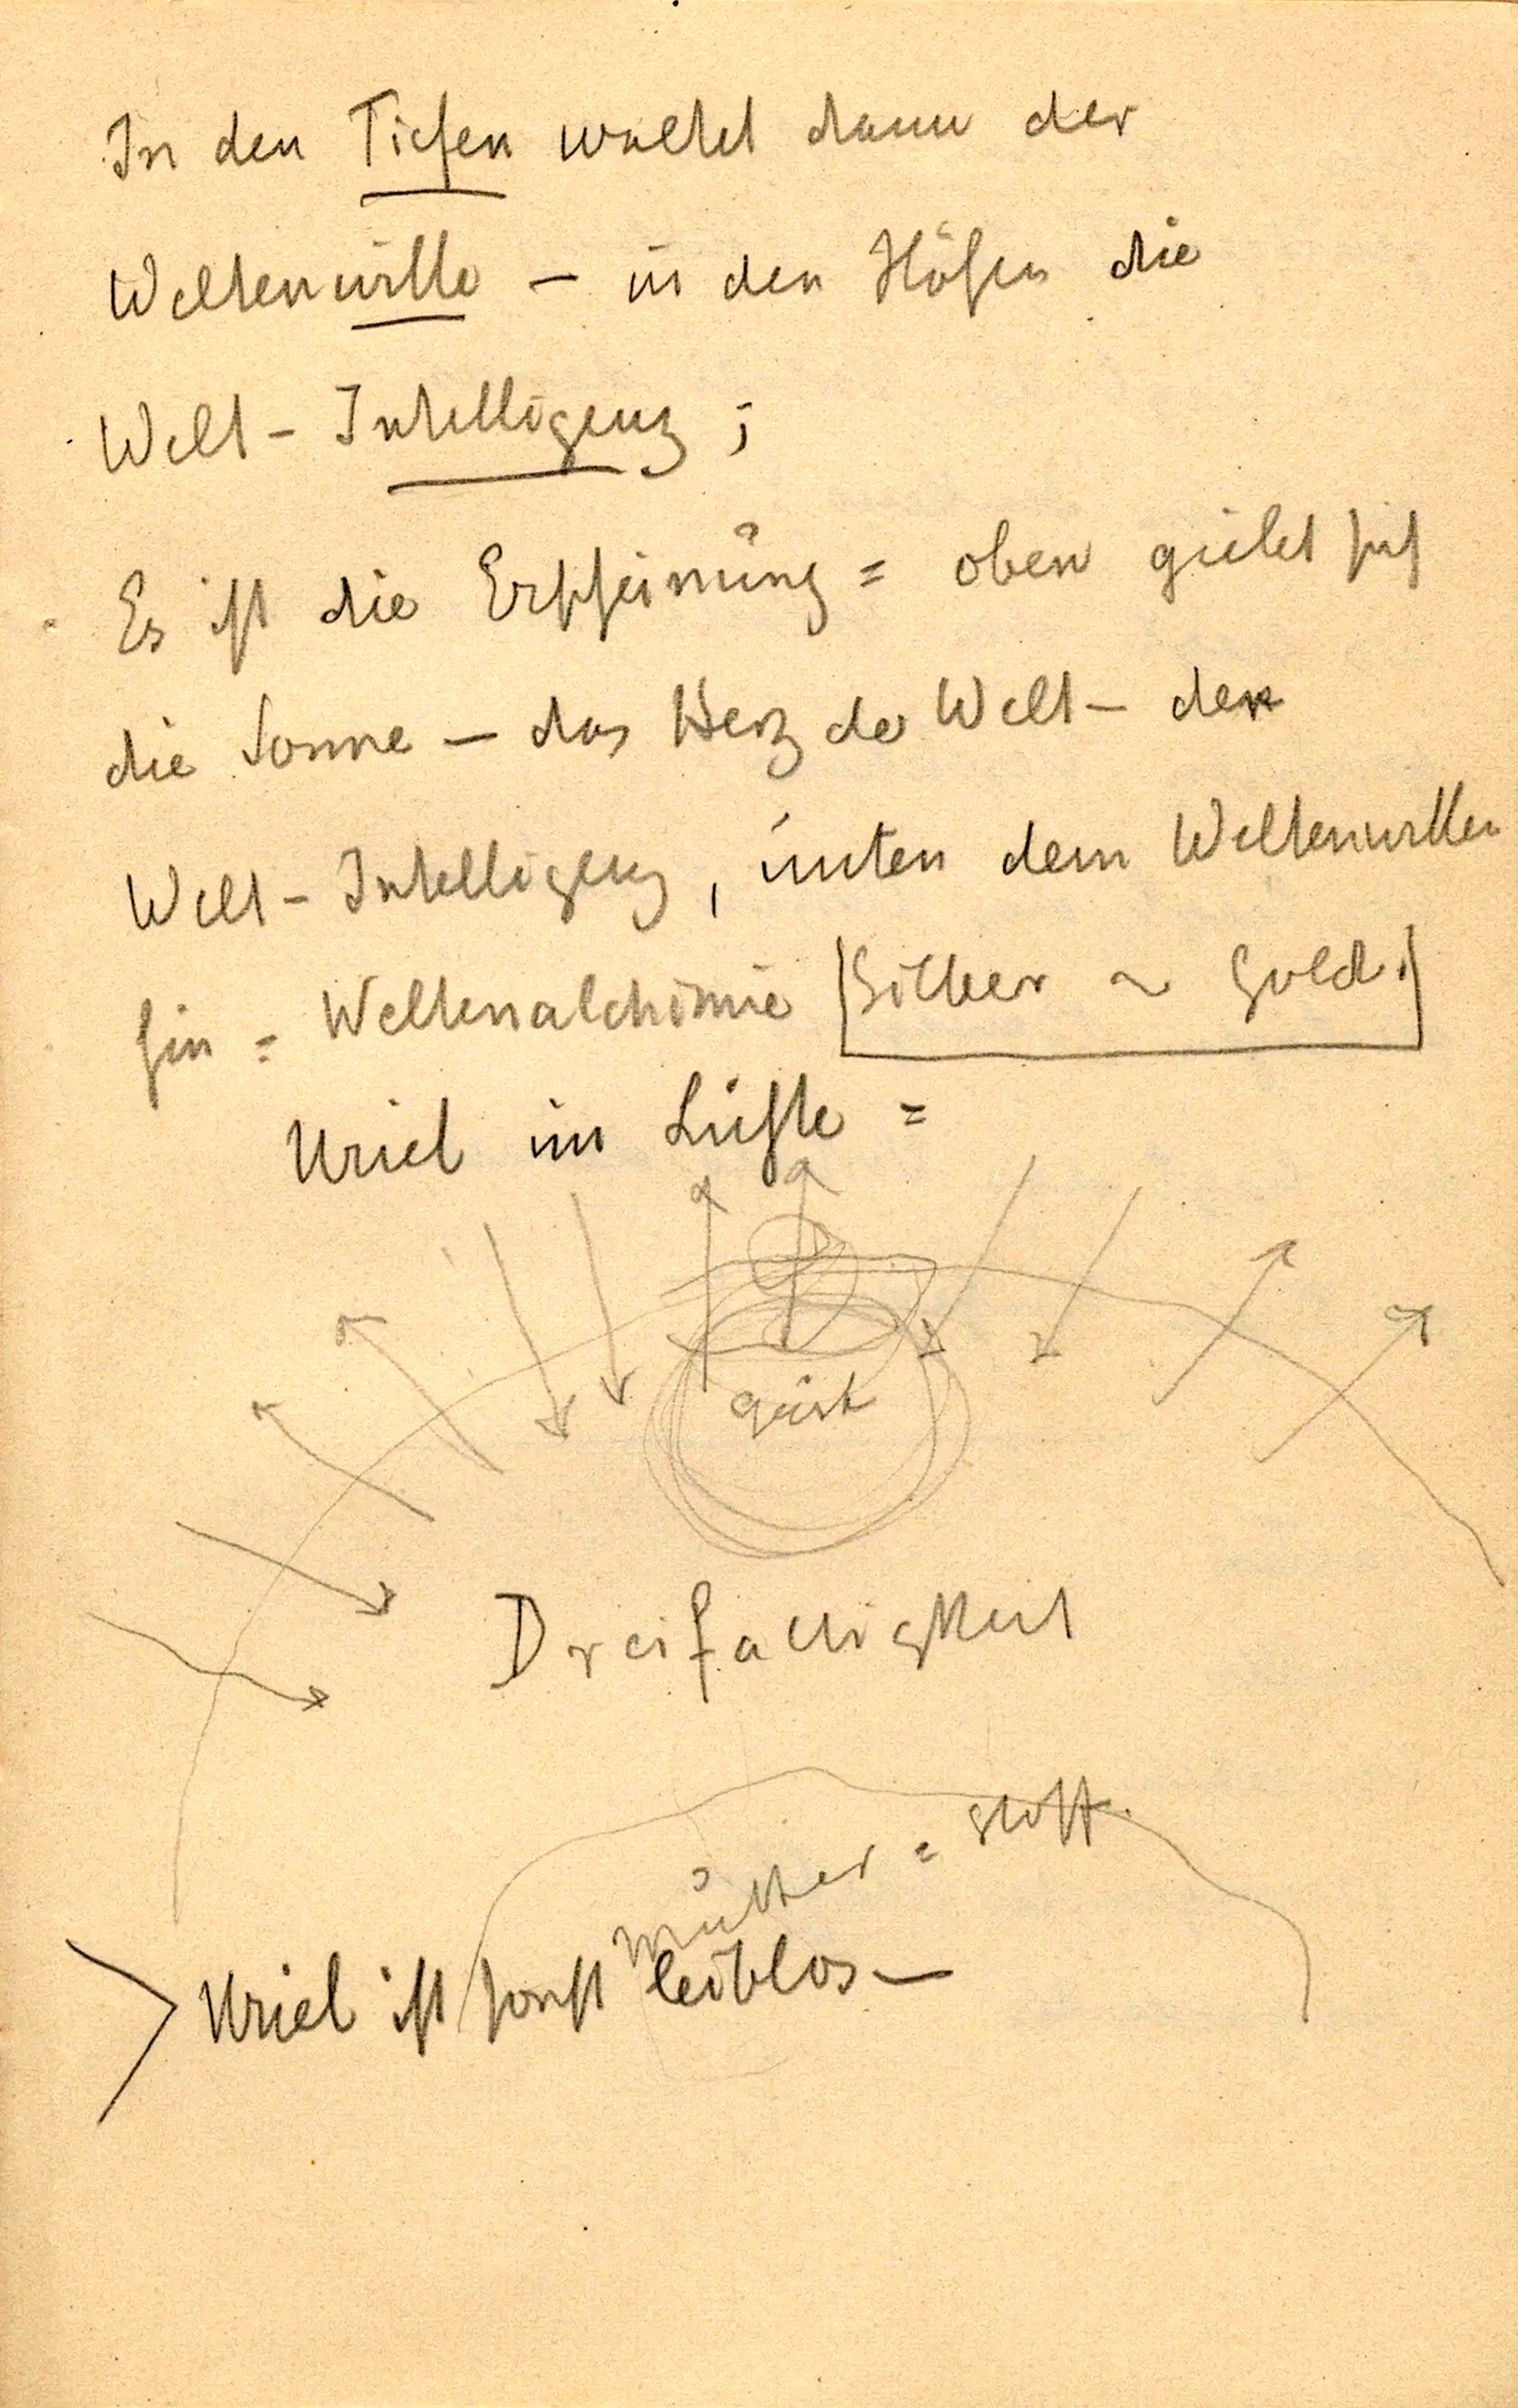 In den Tiefen waltet dann der
Weltenwille – in den Höhen die
Welt-Intelligenz;
Es ist die Erscheinung = oben giebt sich
die Sonne – das Herz der Welt – der
Welt-Intelligenz, unten dem Weltenwillen
hin = Weltenalchimie [Silber ~ Gold.]
Uriel im Lichte =
geist
Dreifaltigkeit
mutter = stoff.
Uriel ist sonst leiblos –